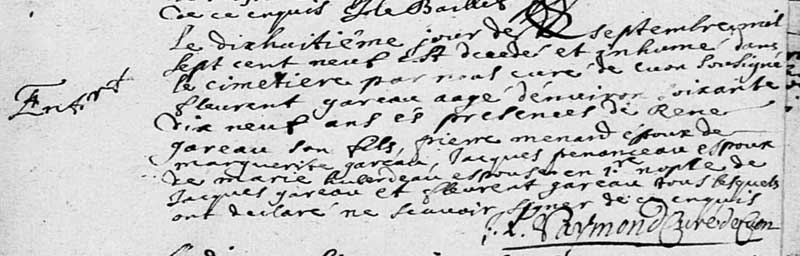 de ce enquis
Le dixhuitiéme jour de septembre mil
sept cent neuf est decedé et inhumé dans
le cimetiere par nous curé de cuon sousigné
Enterrt fleurent gareau aagé d'environ soixante
dix neuf ans es presences de René
gareau son fils, pierre menard espoux de
marguerite gareau, Jacques espoux
de marie huberdeau espouse en 1re nopte de
Jacques gareau et fleurent gareau tous lesquels
ont declaré ne scavoir signer de ce enquis
Raymond Curé de Cuon